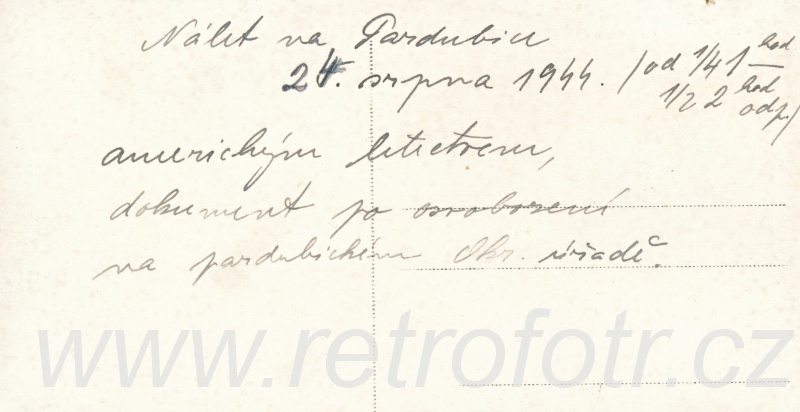 Nálet na Pardubice
24. srpna 1944. (od 1/4 1 hod – 1/2 2 hod odp.)
americkým letectvem,
dokument po osvobození
na pardubickém Okr. úřadě.
www.retrofotr.cz